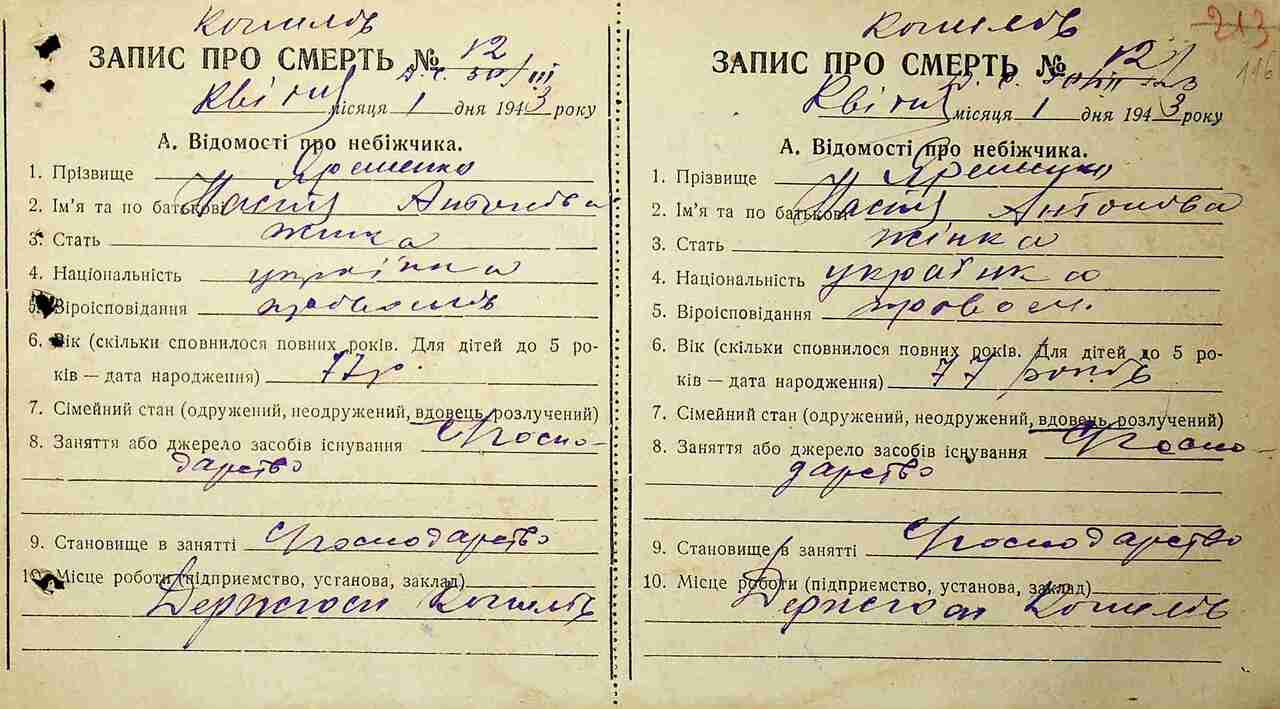 Кошилів
ЗАПИС ПРО СМЕРТЬ № 12
Квітня місяця 1 дня 1943 року
А. Відомості про небіжчика.
1. Прізвище
2. Ім'я та по батькові Настя Антонова
3. Стать жінка
4. Національність українка
5. Віроісповідання
6. Вік (скільки сповнилося повних років. Для дітей до 5 ро-
ків — дата народження) 77 р.
7. Сімейний стан (одружений, неодружений, вдовець, розлучений)
8. Заняття або джерело засобів існування Господарство
9. Становище в занятті Господарство
10. Місце роботи (підприємство, установа, заклад)
Держгосп Кошилів
Кошилів
213
116
ЗАПИС ПРО СМЕРТЬ № 12
Квітня місяця 1 дня 1943 року
А. Відомості про небіжчика.
1. Прізвище
2. Ім'я та по батькові Настя Антонова
3. Стать жінка
4. Національність українка
5. Віроісповідання правосл.
6. Вік (скільки сповнилося повних років. Для дітей до 5 ро-
ків — дата народження) 77 років
7. Сімейний стан (одружений, неодружений, вдовець, розлучений)
8. Заняття або джерело засобів існування Господарство
9. Становище в занятті Господарство
10. Місце роботи (підприємство, установа, заклад)
Держгосп Кошилів